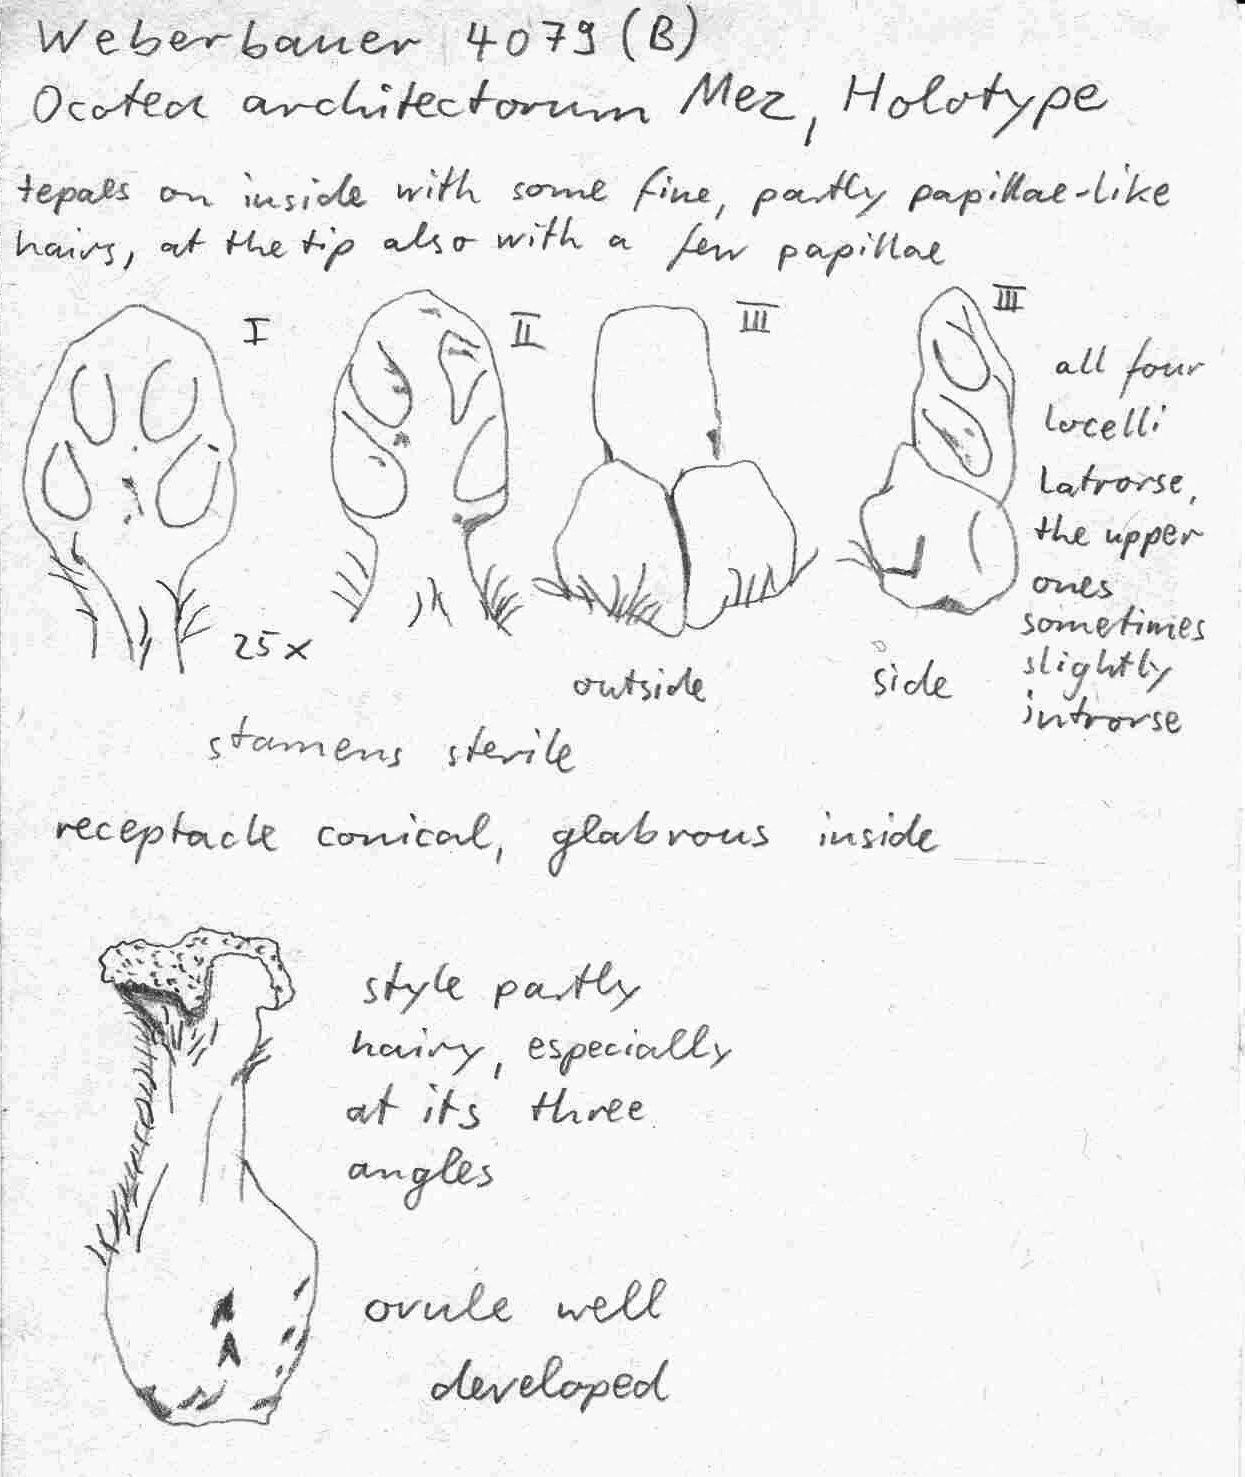 Weberbauer 4079 (B)
Ocotea architectorum Mez, Holotype
tepals on inside with some fine, partly papillae-like
hairs, at the tip also with a few papillae
I
II
III
III
all four
locelli
latrorse,
the upper
ones
sometimes
slightly
introrse
25x
outside
side
stamens sterile
receptacle conical, glabrous inside
style partly
hairy, especially
at its three
angles
ovule well
developed